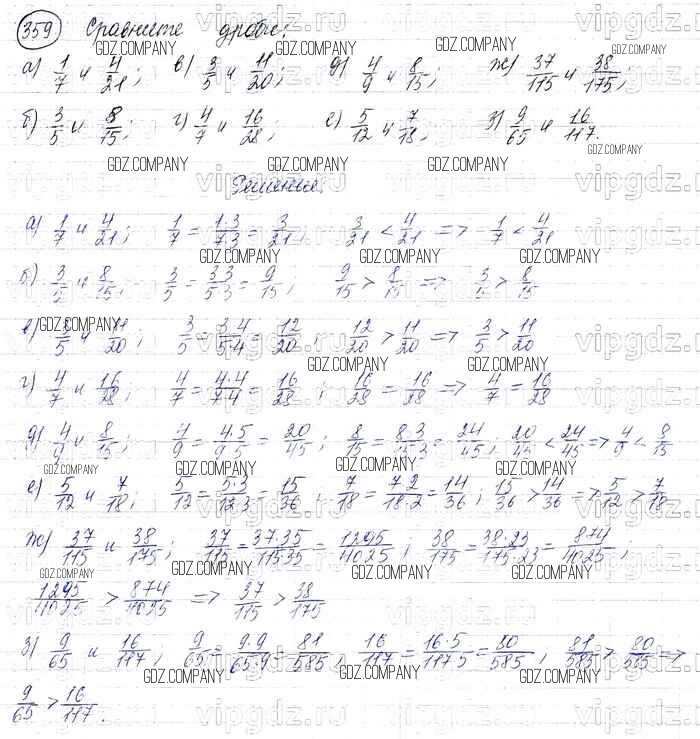 359 Сравните дроби:
а) 1/7 и 4/21; в) 3/5 и 11/20; д) 4/9 и 8/15; ж) 37/115 и 38/175;
б) 3/5 и 8/15; г) 4/7 и 16/28; е) 5/12 и 7/18; з) 9/65 и 16/117.
Решение:
а) 1/7 и 4/21; 1/7 = 1·3/7·3 = 3/21; 3/21 < 4/21 => 1/7 < 4/21
б) 3/5 и 8/15; 3/5 = 3·3/5·3 = 9/15; 9/15 > 8/15 => 3/5 > 8/15
в) 3/5 и 11/20; 3/5 = 3·4/5·4 = 12/20; 12/20 > 11/20 => 3/5 > 11/20
г) 4/7 и 16/28; 4/7 = 4·4/7·4 = 16/28; 16/28 = 16/28 => 4/7 = 16/28
д) 4/9 и 8/15; 4/9 = 4·5/9·5 = 20/45; 8/15 = 8·3/15·3 = 24/45; 20/45 < 24/45 => 4/9 < 8/15
е) 5/12 и 7/18; 5/12 = 5·3/12·3 = 15/36; 7/18 = 7·2/18·2 = 14/36; 15/36 > 14/36 => 5/12 > 7/18
ж) 37/115 и 38/175; 37/115 = 37·35/115·35 = 1295/4025; 38/175 = 38·23/175·23 = 874/4025;
1295/4025 > 874/4025 => 37/115 > 38/175
з) 9/65 и 16/117; 9/65 = 9·9/65·9 = 81/585; 16/117 = 16·5/117·5 = 80/585; 81/585 > 80/585 =>
9/65 > 16/117.
GDZ.COMPANY
vipgdz.ru